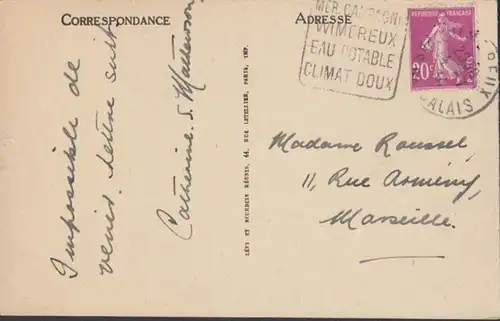 CORRESPONDANCE
Impossible de
venir. Lettre suit
Catherine. S. Matterson
LÉVY ET NEURDEIN RÉUNIS, 44, RUE LETELLIER, PARIS, IMP.
ADRESSE
MER. CAMPAGNE
WIMEREUX
EAU POTABLE
CLIMAT DOUX
REPUBLIQUE FRANÇAISE
20c
POSTES
CALAIS
Madame Roussel,
11, Rue Armény,
Marseille.